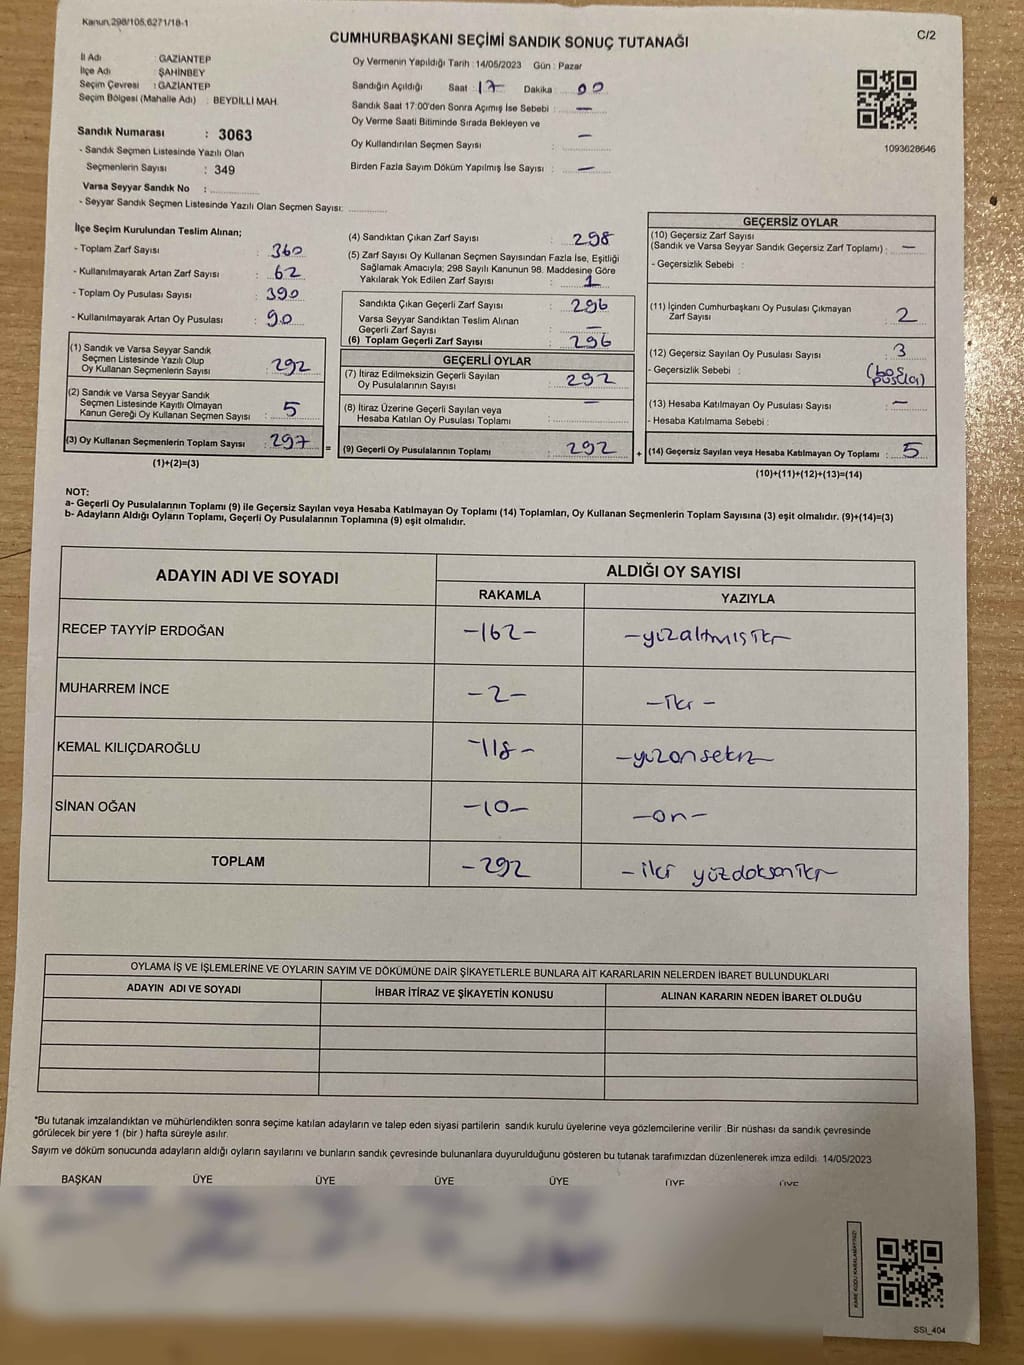 Kanun,298/105,6271/18-1
CUMHURBAŞKANI SEÇİMİ SANDIK SONUÇ TUTANAĞI
C/2
İl Adı GAZİANTEP
İlçe Adı : ŞAHİNBEY
Seçim Çevresi : GAZİANTEP
Seçim Bölgesi (Mahalle Adı) : BEYDİLLİ MAH.
Sandık Numarası : 3063
- Sandık Seçmen Listesinde Yazılı Olan
Seçmenlerin Sayısı : 349
Varsa Seyyar Sandık No :
- Seyyar Sandık Seçmen Listesinde Yazılı Olan Seçmen Sayısı:
Oy Vermenin Yapıldığı Tarih : 14/05/2023 Gün : Pazar
Sandığın Açıldığı Saat : 17 Dakika : 00
Sandık Saat 17:00'den Sonra Açımış İse Sebebi : —
Oy Verme Saati Bitiminde Sırada Bekleyen ve
Oy Kullandırılan Seçmen Sayısı : —
Birden Fazla Sayım Döküm Yapılmış İse Sayısı : —
1093628646
İlçe Seçim Kurulundan Teslim Alınan;
- Toplam Zarf Sayısı : 360
- Kullanılmayarak Artan Zarf Sayısı : 62
- Toplam Oy Pusulası Sayısı : 390
- Kullanılmayarak Artan Oy Pusulası : 90
(1) Sandık ve Varsa Seyyar Sandık
Seçmen Listesinde Yazılı Olup
Oy Kullanan Seçmenlerin Sayısı : 292
(2) Sandık ve Varsa Seyyar Sandık
Seçmen Listesinde Kayıtlı Olmayan
Kanun Gereği Oy Kullanan Seçmen Sayısı : 5
(3) Oy Kullanan Seçmenlerin Toplam Sayısı : 297 =
(1)+(2)=(3)
(4) Sandıktan Çıkan Zarf Sayısı : 298
(5) Zarf Sayısı Oy Kullanan Seçmen Sayısından Fazla İse, Eşitliği
Sağlamak Amacıyla; 298 Sayılı Kanunun 98. Maddesine Göre
Yakılarak Yok Edilen Zarf Sayısı : 1
Sandıkta Çıkan Geçerli Zarf Sayısı : 296
Varsa Seyyar Sandıktan Teslim Alınan
Geçerli Zarf Sayısı : —
(6) Toplam Geçerli Zarf Sayısı : 296
GEÇERLİ OYLAR
(7) İtiraz Edilmeksizin Geçerli Sayılan
Oy Pusulalarının Sayısı : 292
(8) İtiraz Üzerine Geçerli Sayılan veya
Hesaba Katılan Oy Pusulası Toplamı : —
(9) Geçerli Oy Pusulalarının Toplamı : 292 +
GEÇERSİZ OYLAR
(10) Geçersiz Zarf Sayısı
(Sandık ve Varsa Seyyar Sandık Geçersiz Zarf Toplamı) : —
- Geçersizlik Sebebi :
(11) İçinden Cumhurbaşkanı Oy Pusulası Çıkmayan
Zarf Sayısı : 2
(12) Geçersiz Sayılan Oy Pusulası Sayısı : 3
- Geçersizlik Sebebi :
(13) Hesaba Katılmayan Oy Pusulası Sayısı : —
- Hesaba Katılmama Sebebi :
(14) Geçersiz Sayılan veya Hesaba Katılmayan Oy Toplamı : 5
(10)+(11)+(12)+(13)=(14)
NOT:
a- Geçerli Oy Pusulalarının Toplamı (9) ile Geçersiz Sayılan veya Hesaba Katılmayan Oy Toplamı (14) Toplamları, Oy Kullanan Seçmenlerin Toplam Sayısına (3) eşit olmalıdır. (9)+(14)=(3)
b- Adayların Aldığı Oyların Toplamı, Geçerli Oy Pusulalarının Toplamına (9) eşit olmalıdır.
ADAYIN ADI VE SOYADI
ALDIĞI OY SAYISI
RAKAMLA YAZIYLA
RECEP TAYYİP ERDOĞAN -162- -yüzaltmışiki
MUHARREM İNCE -2- -iki-
KEMAL KILIÇDAROĞLU -118- -yüzonsekiz
SİNAN OĞAN -10- -on-
TOPLAM -292 -iki yüzdoksaniki
OYLAMA İŞ VE İŞLEMLERİNE VE OYLARIN SAYIM VE DÖKÜMÜNE DAİR ŞİKAYETLERLE BUNLARA AİT KARARLARIN NELERDEN İBARET BULUNDUKLARI
ADAYIN ADI VE SOYADI İHBAR İTİRAZ VE ŞİKAYETİN KONUSU ALINAN KARARIN NEDEN İBARET OLDUĞU
*Bu tutanak imzalandıktan ve mühürlendikten sonra seçime katılan adayların ve talep eden siyasi partilerin sandık kurulu üyelerine veya gözlemcilerine verilir .Bir nüshası da sandık çevresinde
görülecek bir yere 1 (bir ) hafta süreyle asılır.
Sayım ve döküm sonucunda adayların aldığı oyların sayılarını ve bunların sandık çevresinde bulunanlara duyurulduğunu gösteren bu tutanak tarafımızdan düzenlenerek imza edildi. 14/05/2023
BAŞKAN ÜYE ÜYE ÜYE ÜYE ÜYE ÜYE
SSI_404